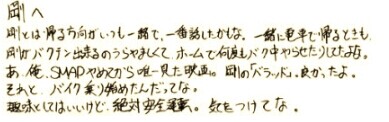 剛へ
剛とは帰る方向がいつも一緒で、一番話したかもな。一緒に電車で帰るときも、
剛がバクテン出来るのうらやましくて、ホームで何度もバク中やらせたりしてたよな。
あ、俺、SMAPやめてから唯一見た映画。剛の「バラッド」。良かったよ。
それと、バイク乗り始めたんだってな。
趣味としてはいいけど、絶対安全運転。気をつけてな。